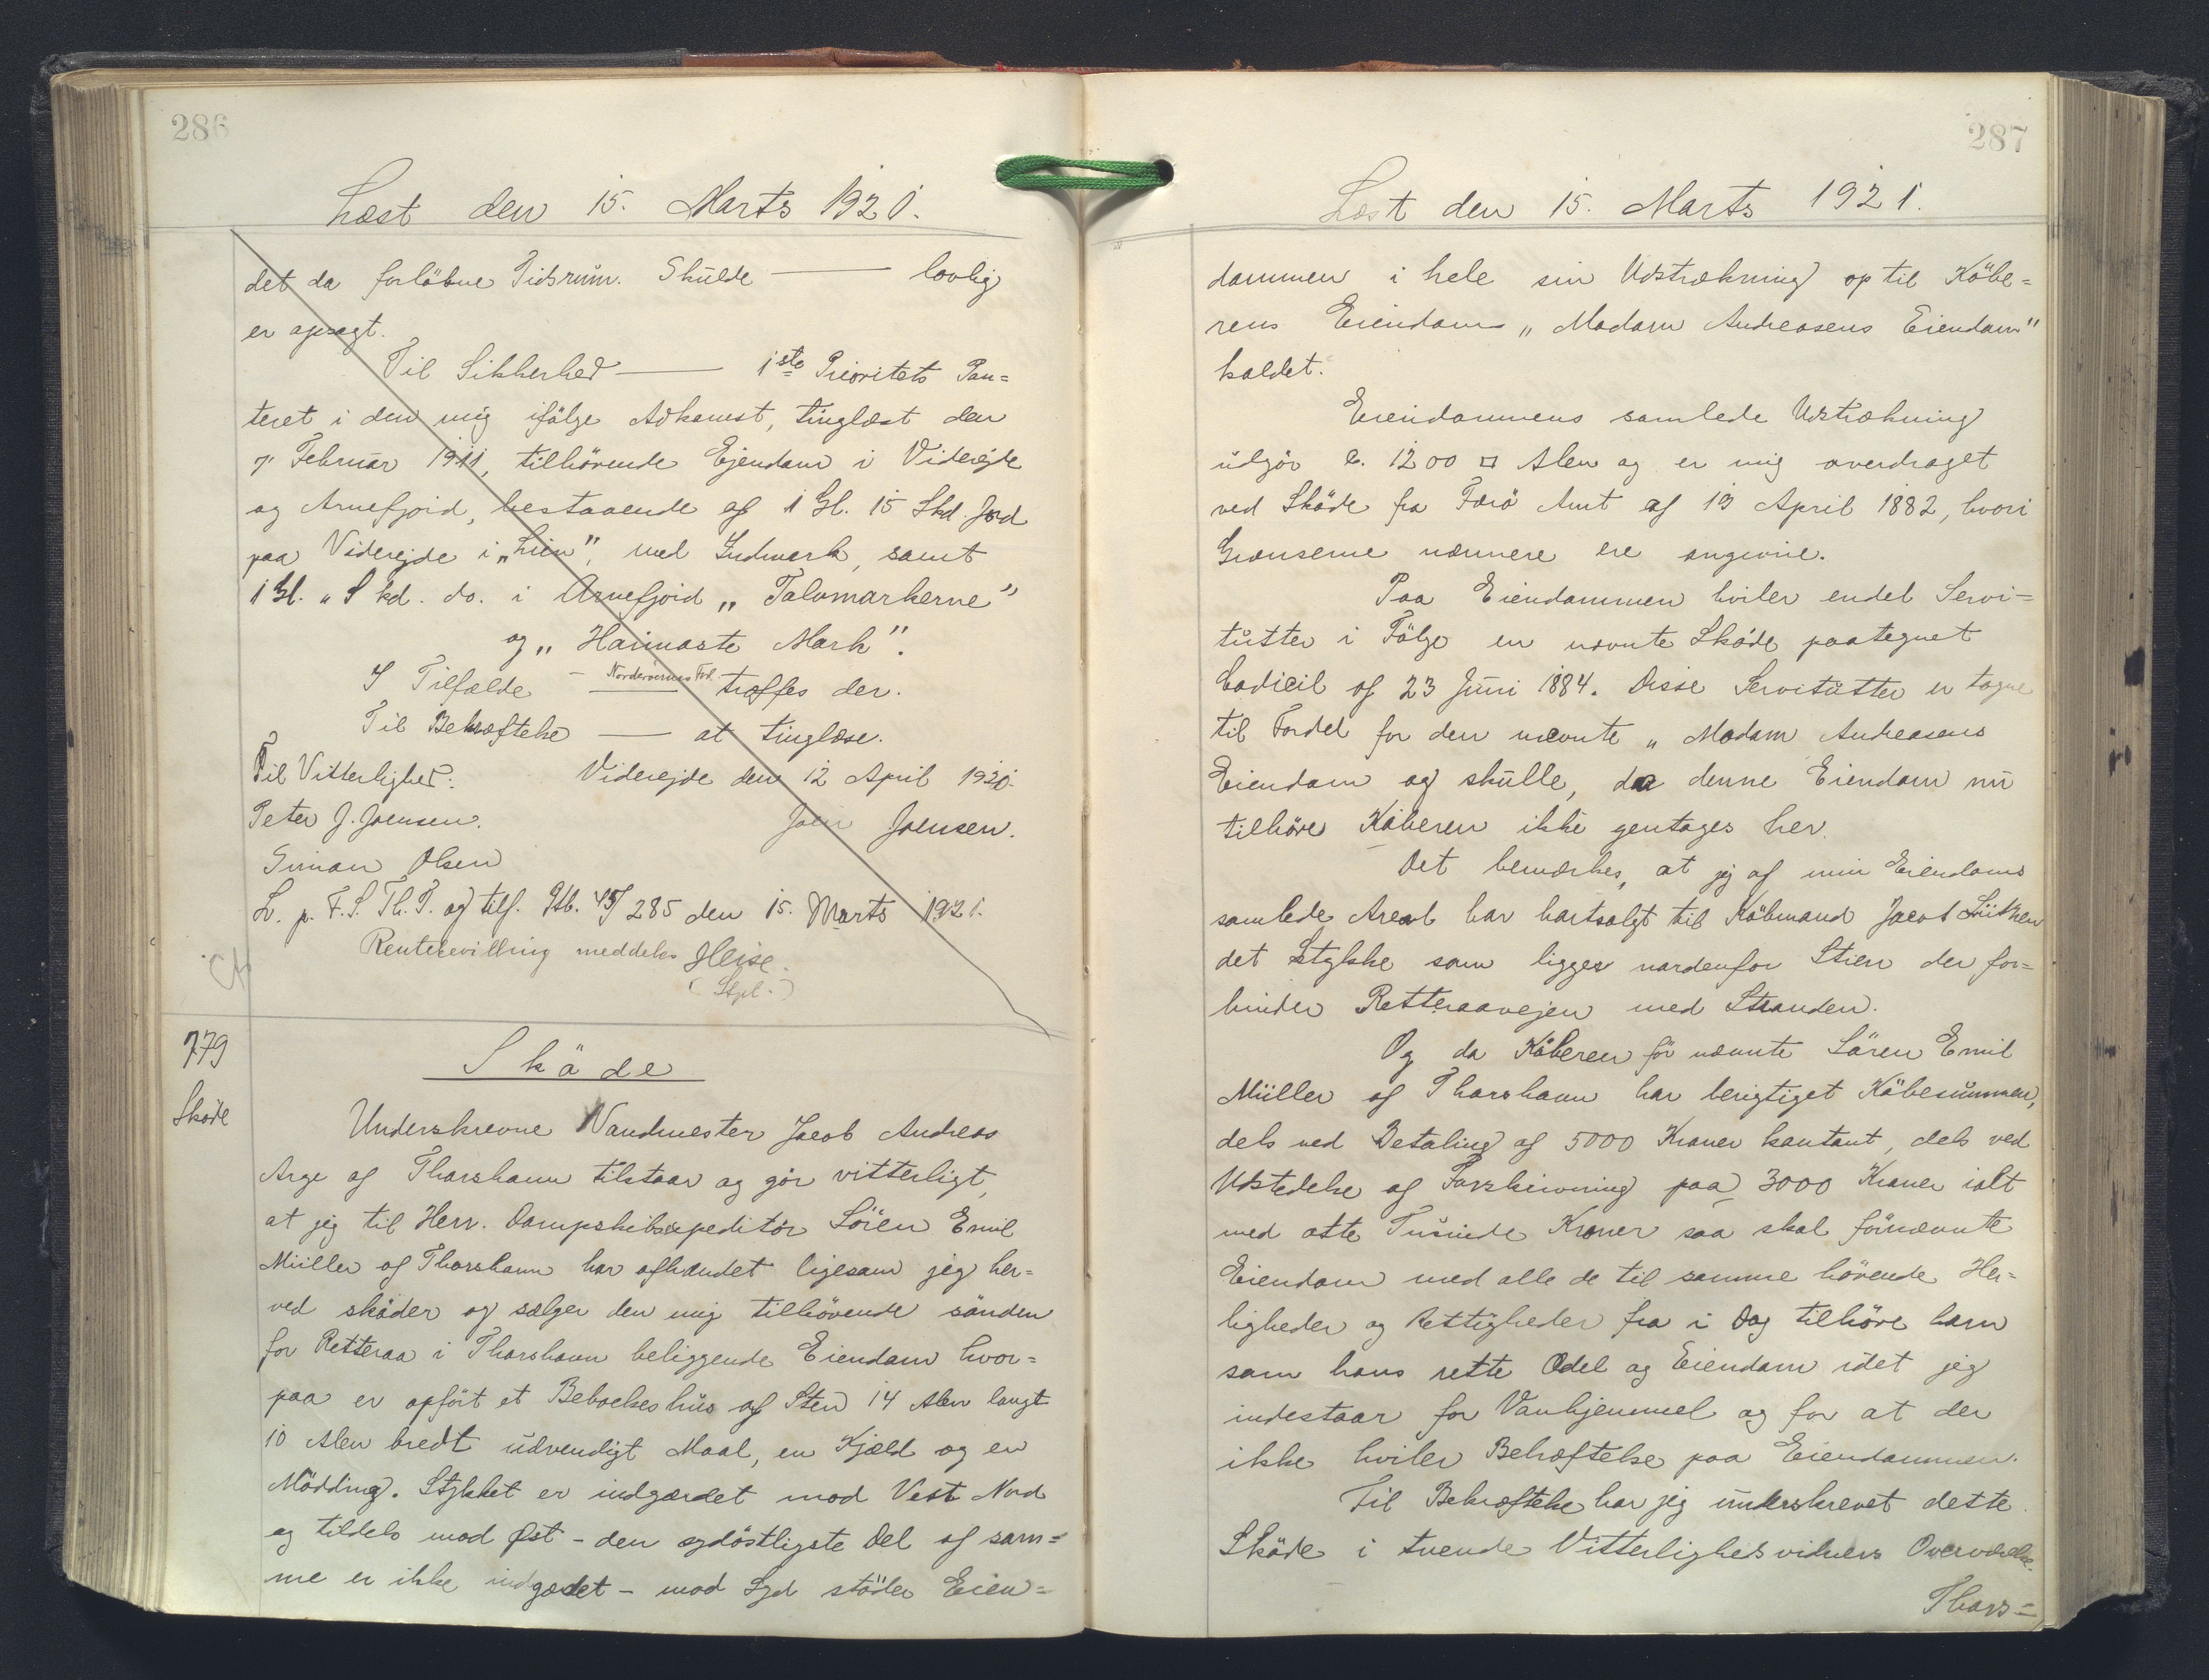 286
Læst den 15. Marts 1921.
det da forløbne Tidsrum. Skulde — lovlig
er opsagt.
Til Sikkerhed — 1ste Prioritets Pan=
teret i den mig ifølge Adkomst, tinglæst den
7' Februar 1911, tilhørende Ejendom i Viderejde
og Arnefjord, bestaaende af 1 Gl. 15 Skd. Jord
paa Viderejde i "Lien", med Indmark, samt
1 Gl. " Skd. do. i Arnefjord "Talvmarkerne"
og "Haimaste Mark".
I Tilfælde — Norderøernes Fvd. træffes der.
Til Bekræftelse — at tinglæse.
Til Vitterlighed: Viderejde den 12 April 1920.
Peter J. Joensen. Joen Joensen.
Simon Olsen
L. p. F. S. Th. T. og tilf. Ptb. 45/285 den 15. Marts 1921.
Rentebevilling meddeles Heise.
(Stpl.)
779
Skøde
Skøde
Underskrevne Vandmester Jacob Andreas
Arge af Thorshavn tilstaar og gør vitterligt,
at jeg til Herr. Dampskibsexpeditør Sören Emil
Müller af Thorshavn har afhændet ligesom jeg her=
ved skøder og sælger den mig tilhørende sønden
for Retteraa i Thorshavn beliggende Eiendom hvor=
paa er opført et Beboelseshus af Sten 14 Alen langt
10 Alen bredt udvendigt Maal, en Kjæld og en
Mødding. Stykket er indgærdet mod Vest Nord
og tildels mod Øst - den sydöstligste Del af sam=
me er ikke indgærdet - mod Syd støder Eien=
287
Læst den 15. Marts 1921.
dommen i hele sin Udstrækning op til Købe=
rens Eiendom "Madam Andreasens Eiendom"
kaldet.
Eiendommens samlede Udstrækning
udgør c. 1200 □ Alen og er mig overdraget
ved Skøde fra Færø Amt af 13 April 1882, hvori
Grænserne nærmere ere angivne.
Paa Eiendommen hviler endel Servi=
tutter i Følge en nævnte Skøde paategnet
Codicil af 23 Juni 1884. Disse Servitutter er tagne
til Fordel for den nævnte "Madam Andreasens
Eiendom og skulle, da denne Eiendom nu
tilhøre Køberen ikke gentages her.
Det bemærkes, at jeg af min Eiendoms
samlede Areal har bortsolgt til Købmand Jacob Lützen
det Stykke som ligger nordenfor Stien der for=
binder Retteraavejen med Stranden.
Og da Køberen før nævnte Sören Emil
Müller af Thorshavn har berigtiget Købesummen,
dels ved Betaling af 5000 Kroner kontant, dels ved
Udstedelse af Forskrivning paa 3000 Kroner ialt
med otte Tusinde Kroner saa skal førnævnte
Eiendom med alle de til samme hørende Her=
ligheder og Rettigheder fra i Dag tilhøre ham
som hans rette Odel og Eiendom idet jeg
indestaar for Vanhjemmel og for at der
ikke hviler Behæftelse paa Eiendommen.
Til Bekræftelse har jeg underskrevet dette
Skøde i tvende Vitterlighedsvidners Overværelse.
Thors=